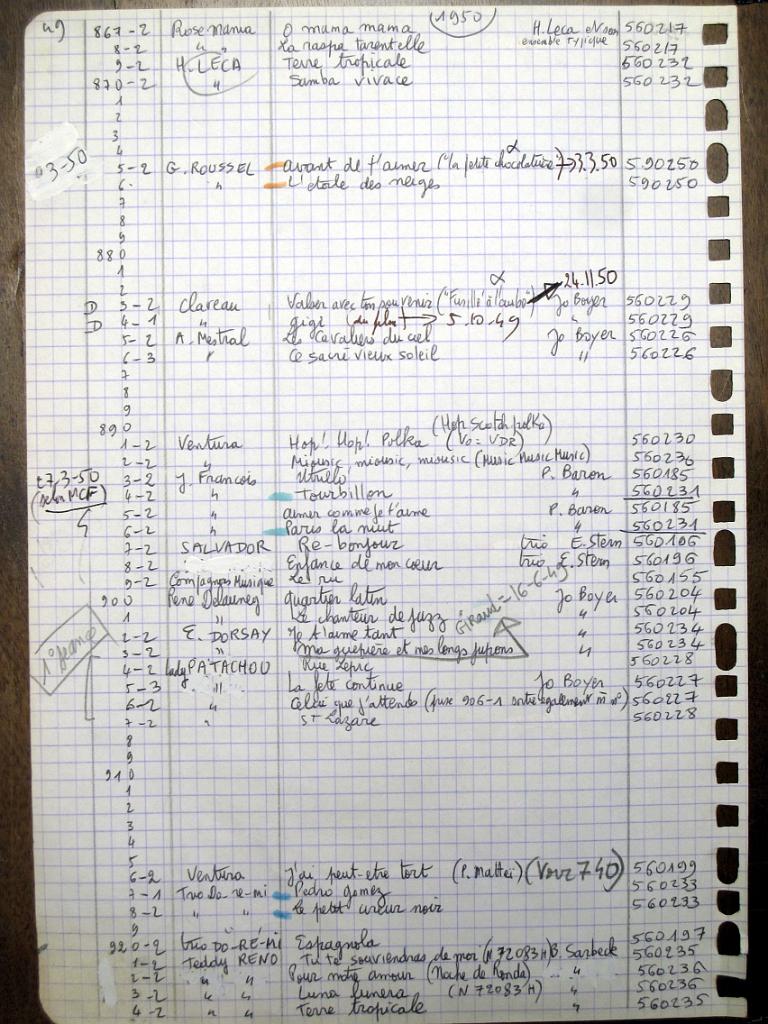 49 867-2 Rose Mania O mama mama (1950) H. Leca et son ensemble typique 560217
8-2 " " La raspa tarentelle 560217
9-2 H. LECA Terre tropicale 560232
870-2 " Samba vivace 560232
1
2
3
4
03-50 5-2 G. ROUSSEL avant de t'aimer ("la petite chocolatière") → 3.3.50 590250
6. " L'étoile des neiges 590250
7
8
9
880
1
2 α 24.11.50
D 3-2 Clareau Valser avec ton souvenir ("Fusillé à l'aube") Jo Boyer 560229
D 4-1 " gigi (du film) → 5.10.49 " 560229
5-2 A. Mestral Les Cavaliers du ciel Jo Boyer 560226
6-3 " Ce sacré vieux soleil " 560226
7
8
9
890 (Hop Scotch polka)
1-2 Ventura Hop! Hop! Polka (Vo = VDR) 560230
2-2 " Miousic, miousic, miousic (Music Music Music) 560236
27.3-50 3-2 J. François Utrillo P. Baron 560185
(selon MCF) 4-2 " Tourbillon " 560231
5-2 " aimer comme je t'aime P. Baron 560185
6-2 " Paris la nuit " 560231
7-2 SALVADOR Re-bonjour trio E. Stern 560196
8-2 Enfance de mon coeur trio E. Stern 560196
9-2 Compagnons Musique Le ru 560155
900 René Delauney quartier latin Jo Boyer 560204
1 " Le chanteur de jazz " 560204
Giraud = 16-6-49
1° séance 2-2 E. DORSAY Je t'aime tant " 560234
3-2 " ma guêpière et mes longs jupons " 560234
4-2 lady PATACHOU Rue Lepic 560228
5-3 " La fête continue Jo Boyer 560227
6-2 " Celui que j'attends (puxe 906-1 sortie également m n°) 560227
7-2 " St Lazare 560228
8
9
910
1
2
3
4
5
6-2 Ventura J'ai peut-etre tort (P. Mattei) (Voir 740) 560199
7-1 Trio Do-re-mi Pedro gomez 560233
8-2 " " Le petit coeur noir 560233
9
920-2 trio DO-RÉ-MI Espagnola 560197
1-2 Teddy RENO Tu te souviendras de moi (N 72083H) B. Sarbeck 560235
2-2 " " Pour notre amour (Noche de Ronda) " 560236
3-2 " " Luna lunera (N 72083H) " 560236
4-2 " " Terre tropicale " 560235